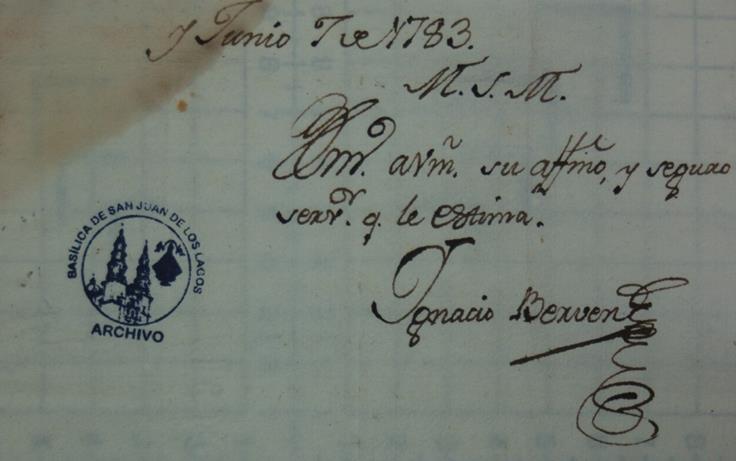 y Junio 7 de 1783.
M. S. M.
Am. a Vm. su affmo, y seguro
servr. q. le estima.
Ignacio Berven
BASÍLICA DE SAN JUAN DE LOS LAGOS
ARCHIVO